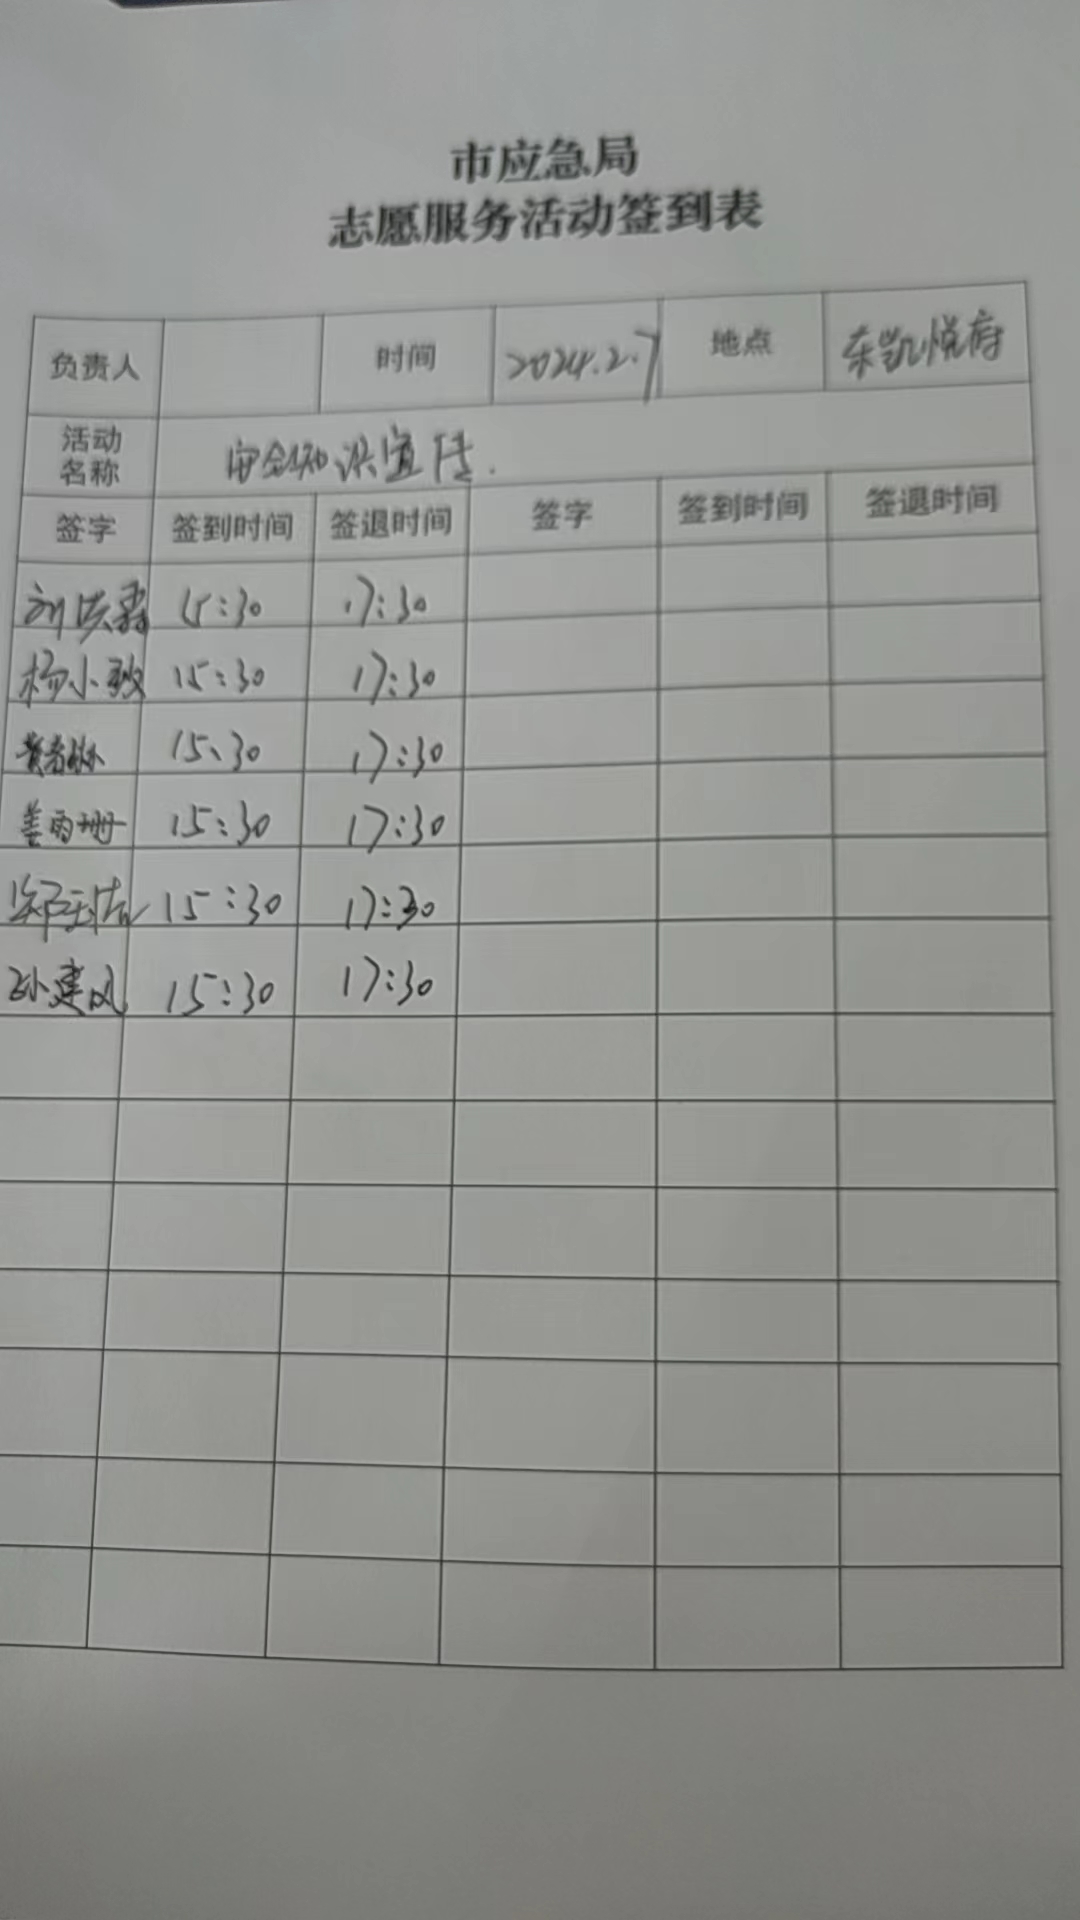 市应急局
志愿服务活动签到表
负责人 时间 2024.2.7 地点 东凯悦府
活动名称 安全知识宣传.
签字 签到时间 签退时间 签字 签到时间 签退时间
刘洪霖 15:30 17:30
杨小毅 15:30 17:30
15:30 17:30
姜雨珊 15:30 17:30
15:30 17:30
孙建风 15:30 17:30